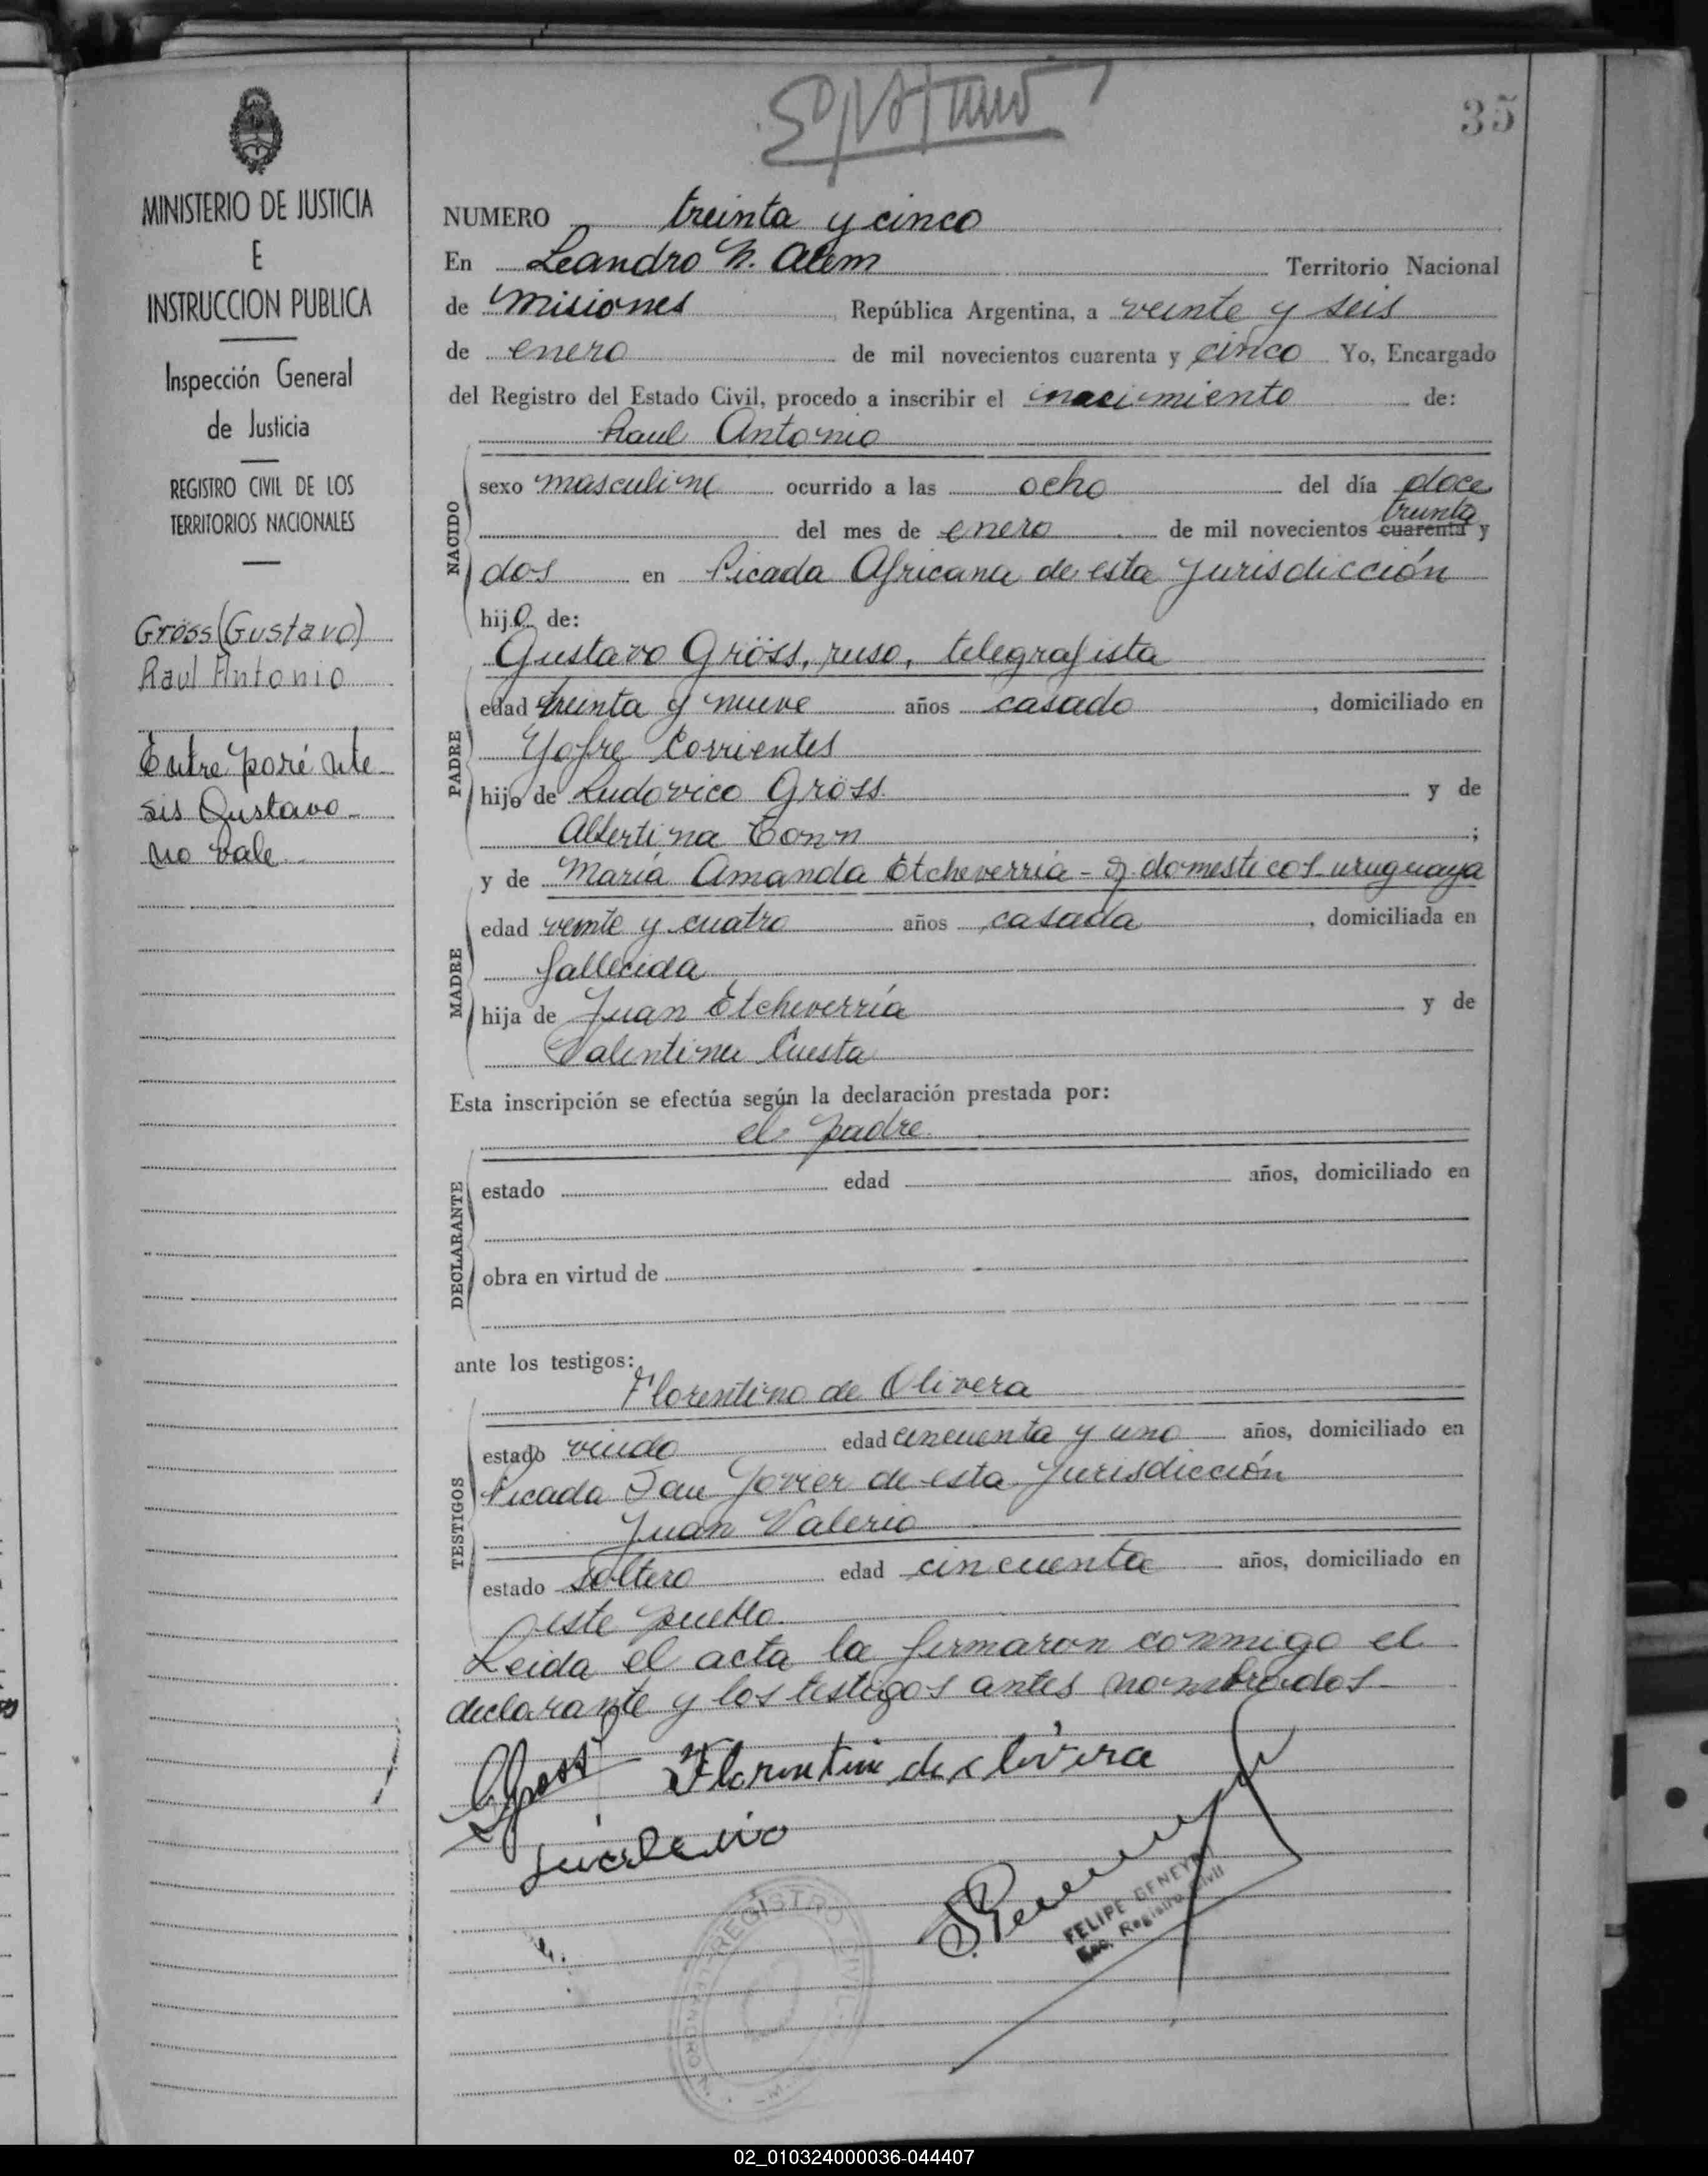 35
MINISTERIO DE JUSTICIA
E
INSTRUCCION PUBLICA
Inspección General
de Justicia
REGISTRO CIVIL DE LOS
TERRITORIOS NACIONALES
Gröss (Gustavo)
Raul Antonio
Entre parénte
sis Gustavo
no vale
NUMERO treinta y cinco
En Leandro N. Alem Territorio Nacional
de Misiones República Argentina, a veinte y seis
de enero de mil novecientos cuarenta y cinco Yo, Encargado
del Registro del Estado Civil, procedo a inscribir el nacimiento de:
Raul Antonio
NACIDO
sexo masculino ocurrido a las ocho del día doce
treinta
del mes de enero de mil novecientos cuarenta y
dos en Picada Africana de esta jurisdicción
hijo de:
Gustavo Gröss, ruso, telegrafista
PADRE
edad treinta y nueve años casado, domiciliado en
Yofre Corrientes
hijo de Ludovico Gröss y de
Albertina Tonn;
y de María Amanda Etcheverría - q. domesticos uruguaya
MADRE
edad veinte y cuatro años casada, domiciliada en
fallecida
hija de Juan Etcheverría y de
Valentina Cuesta
Esta inscripción se efectúa según la declaración prestada por:
el padre
DECLARANTE
estado edad años, domiciliado en
obra en virtud de
ante los testigos:
Florentino de Olivera
TESTIGOS
estado viudo edad cincuenta y uno años, domiciliado en
Picada San Javier de esta jurisdicción
Juan Valerio
estado soltero edad cincuenta años, domiciliado en
este pueblo
Leida el acta la firmaron conmigo el
declarante y los testigos antes nombrados
GGross Florentin de olivera
FELIPE GENEYRO
Enc. Registro Civil
REGISTRO CIVIL
02_010324000036-044407